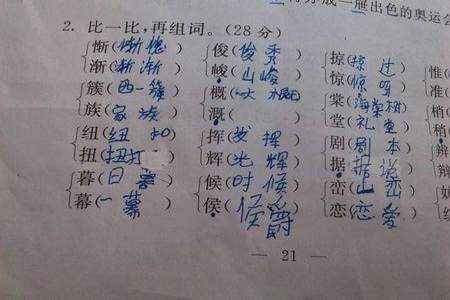 一届出色的奥运会
2. 比一比,再组词。(28 分)
惭(惭愧) 俊(俊秀) 掠(掠过) 惟(
渐(渐渐) 峻(山峻) 惊(惊呀) 准(
簇(一簇) 概(大概) 棠(海棠树) 梢(
族(家族) 溉( ) 堂(礼堂) 稍(
纽(纽扣) 挥(发挥) 剧(剧本) 辨
扭(扭打) 辉(光辉) 据(据说) 辩
暮(日暮) 候(时候) 峦(山峦)
幕(一幕) 侯(侯爵) 恋(恋爱)
— 21 —